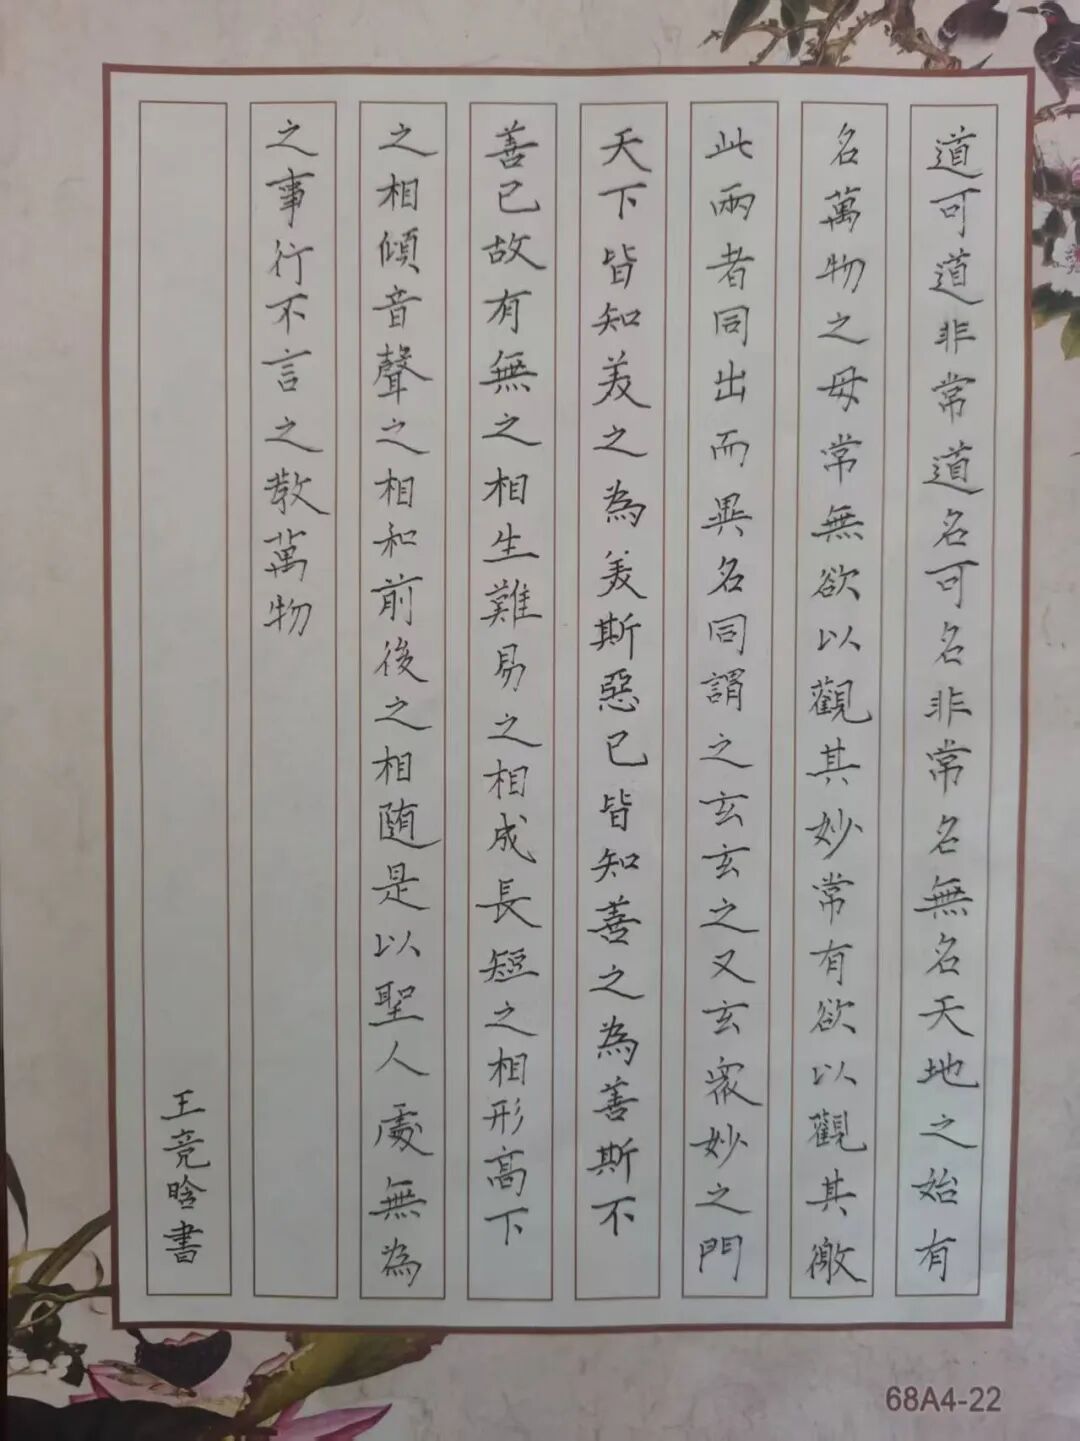 道可道非常道名可名非常名無名天地之始有
名萬物之母常無欲以觀其妙常有欲以觀其徼
此兩者同出而異名同謂之玄玄之又玄衆妙之門
天下皆知美之為美斯惡已皆知善之為善斯不
善已故有無之相生難易之相成長短之相形高下
之相傾音聲之相和前後之相随是以聖人處無為
之事行不言之教萬物
王竞晗書
68A4-22